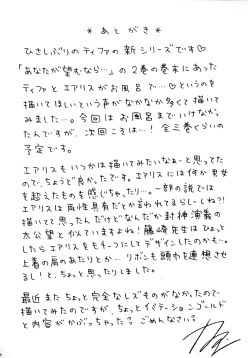 ＊あとがき＊
ひさしぶりのティファの新シリーズです♡
「あなたが望むなら…」の2巻の巻末にあった
ティファとエアリスがお風呂で…♡というのを
描いてほしいという声がなかなか多くて描いて
みました…。今回はお風呂までは行けなかっ
たんですが、次回こそは…！全三巻くらいの
予定です。
エアリスもいつかは描いてみたいなぁーと思ってた
ので、ちょうど良かったです。エアリスには何か男女
を超えたものを感じちゃったり…。一部の説では
エアリスは両性具有だとか言われてるらしーしね?!
描いてて思ったんだけどなんだか封神演義の
太公望と似ていますよね！藤崎先生はひょっと
したらエアリスをモチーフにしてデザインしたのかも…。
上着の肩のあたりとか…リボンも頭巾を連想させ
るし！と、ちょっと思ったりしました。
最近またちょっと完全なレズものがなかったので
描いてみたのですが、ちょっとイミテーションゴールド
と内容がかぶっちゃった？ごめんなさい？